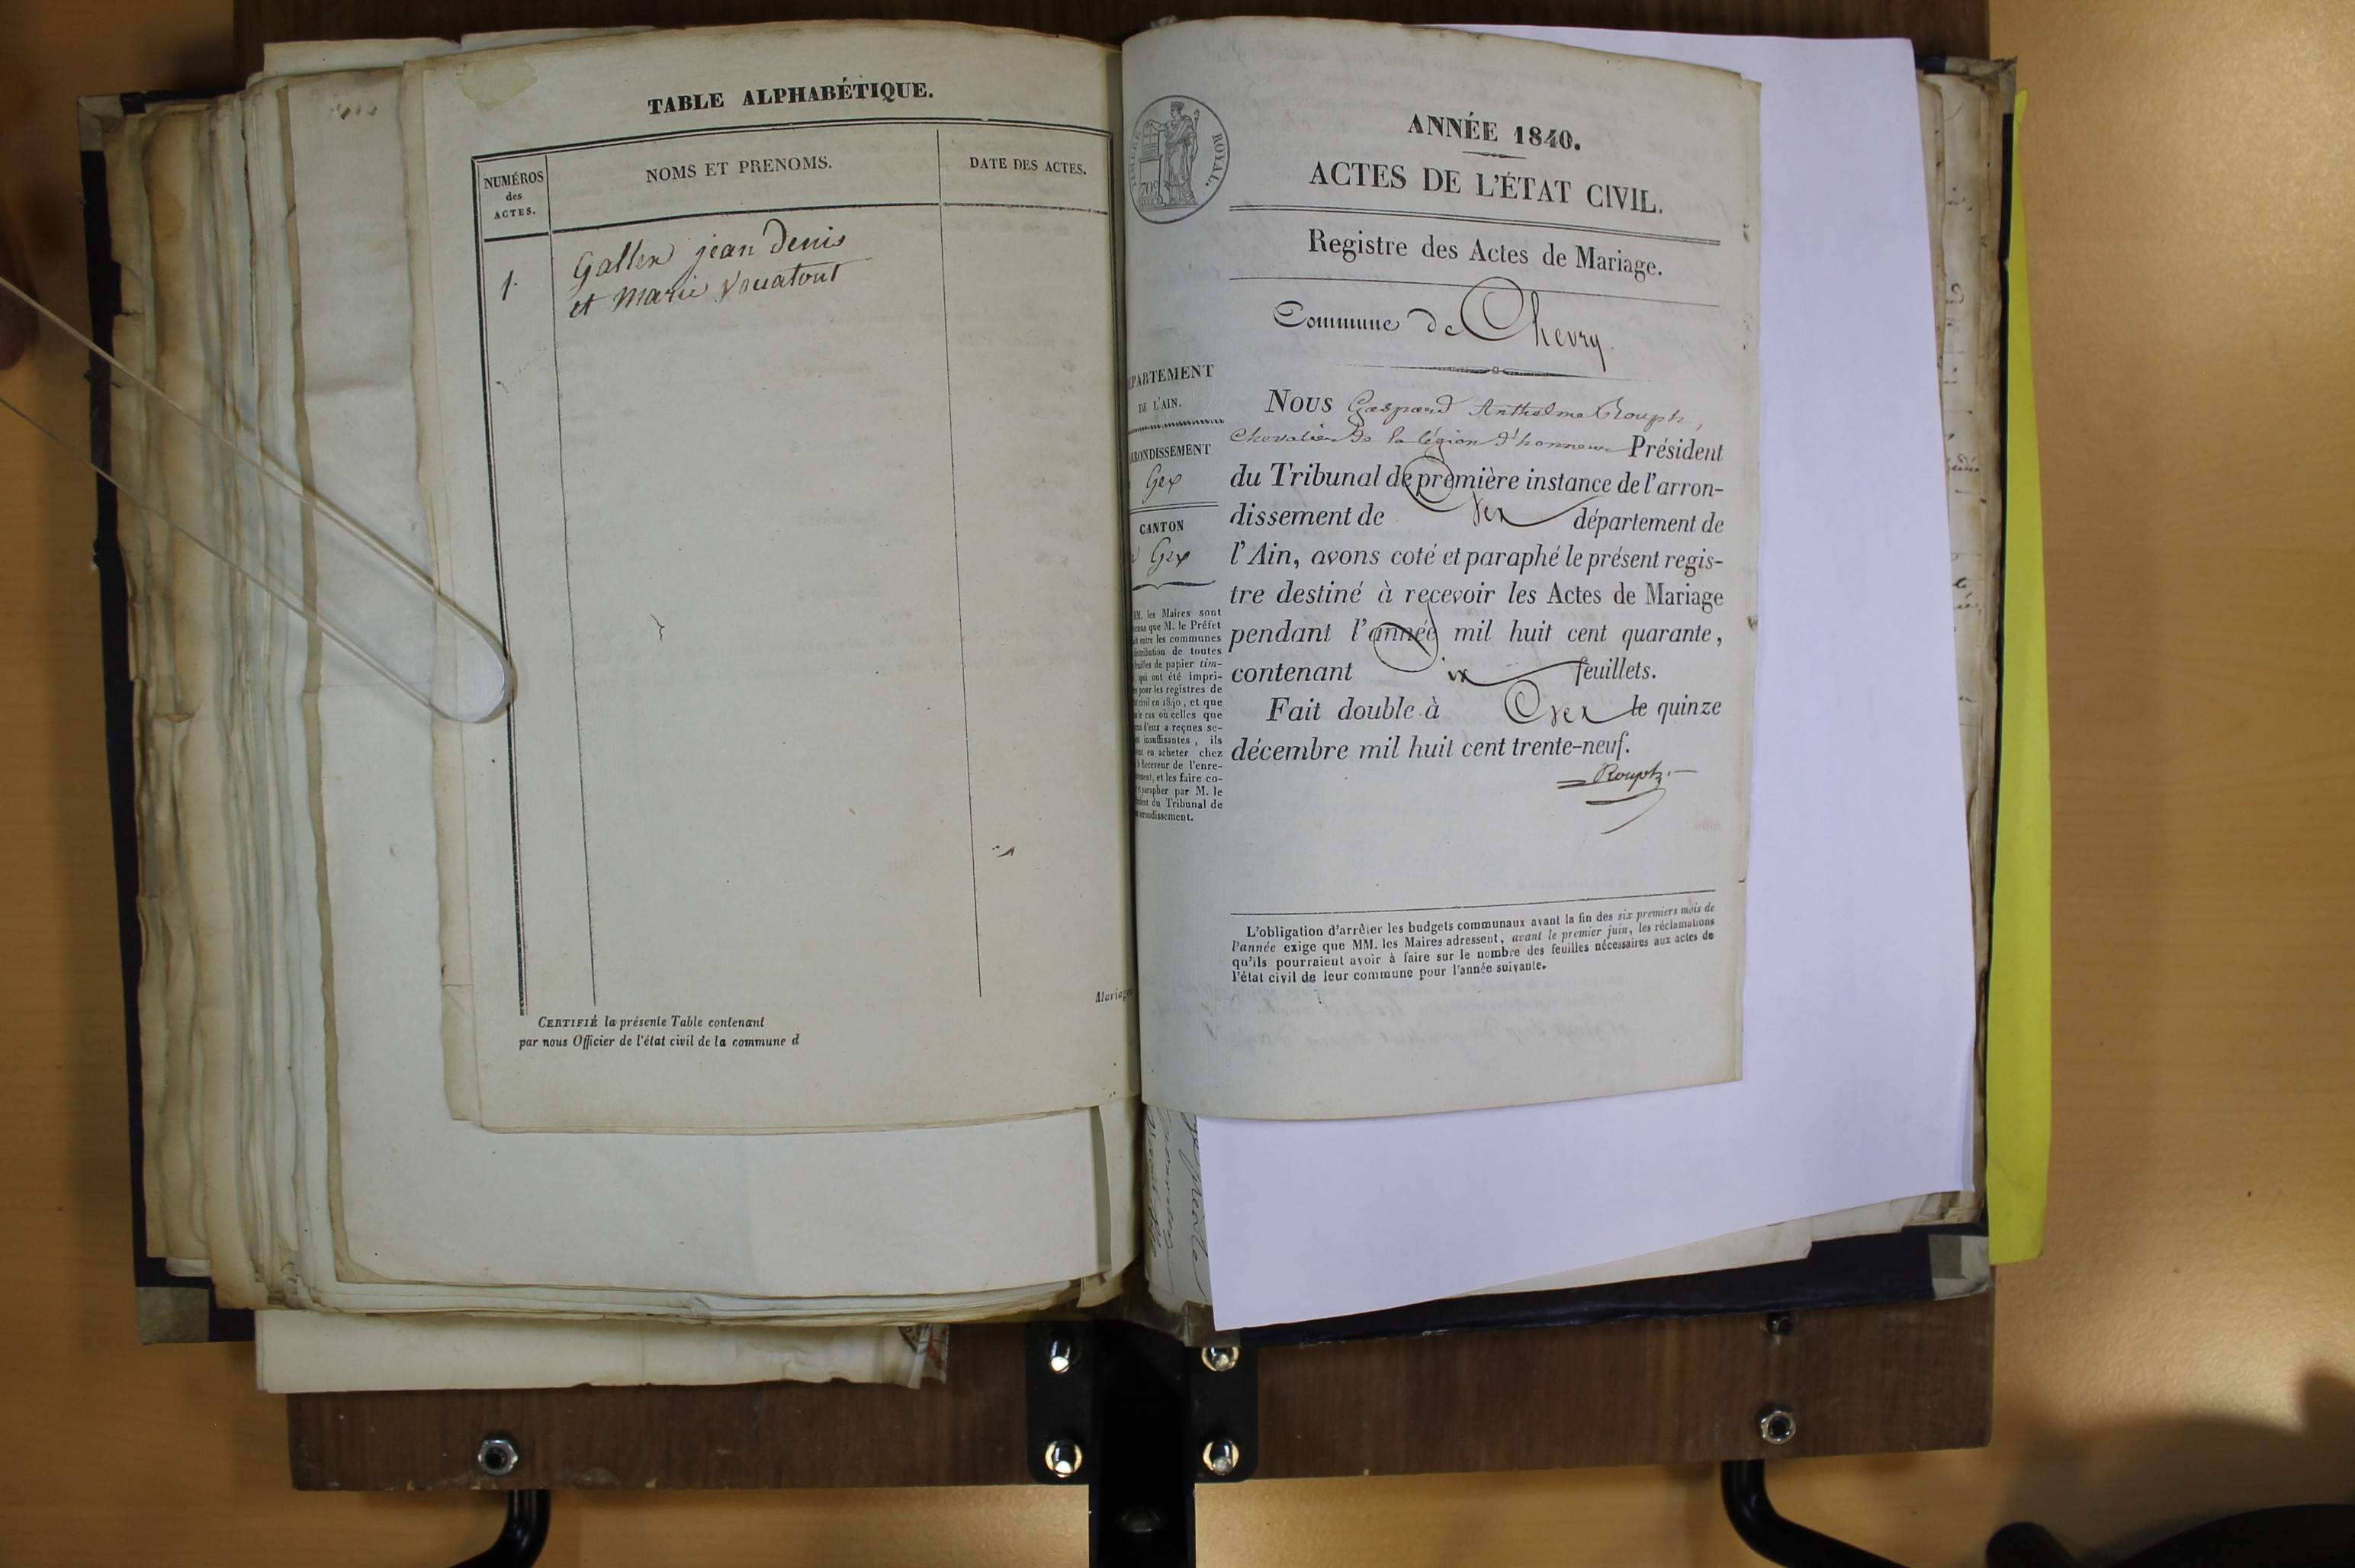 TABLE ALPHABÉTIQUE.
NUMÉROS
des
ACTES.
NOMS ET PRENOMS.
DATE DES ACTES.
1.
jean Denis
et Marie Vouatout
Mariage
CERTIFIÉ la présente Table contenant
par nous Officier de l'état civil de la commune d
ROYAL.
ANNÉE 1840.
ACTES DE L'ÉTAT CIVIL.
Registre des Actes de Mariage.
Commune de Chevry
PARTEMENT
DE L'AIN.
RONDISSEMENT
Gex
CANTON
Gex
MM. les Maires sont
que M. le Préfet
entre les communes
de toutes
de papier tim-
qui ont été impri-
pour les registres de
civil en 1840, et que
cas où celles que
d'eux a reçues se-
insuffisantes, ils
en acheter chez
Receveur de l'enre-
et les faire co-
parapher par M. le
du Tribunal de
arrondissement.
NOUS Gaspard Anthelme Rouph,
Chevalier De la légion d'honneur Président
du Tribunal de première instance de l'arron-
dissement de Gex département de
l'Ain, avons coté et paraphé le présent regis-
tre destiné à recevoir les Actes de Mariage
pendant l'année mil huit cent quarante,
contenant Dix feuillets.
Fait double à Gex le quinze
décembre mil huit cent trente-neuf.
L'obligation d'arrêter les budgets communaux avant la fin des six premiers mois de
l'année exige que MM. les Maires adressent, avant le premier juin, les réclamations
qu'ils pourraient avoir à faire sur le nombre des feuilles nécessaires aux actes de
l'état civil de leur commune pour l'année suivante.